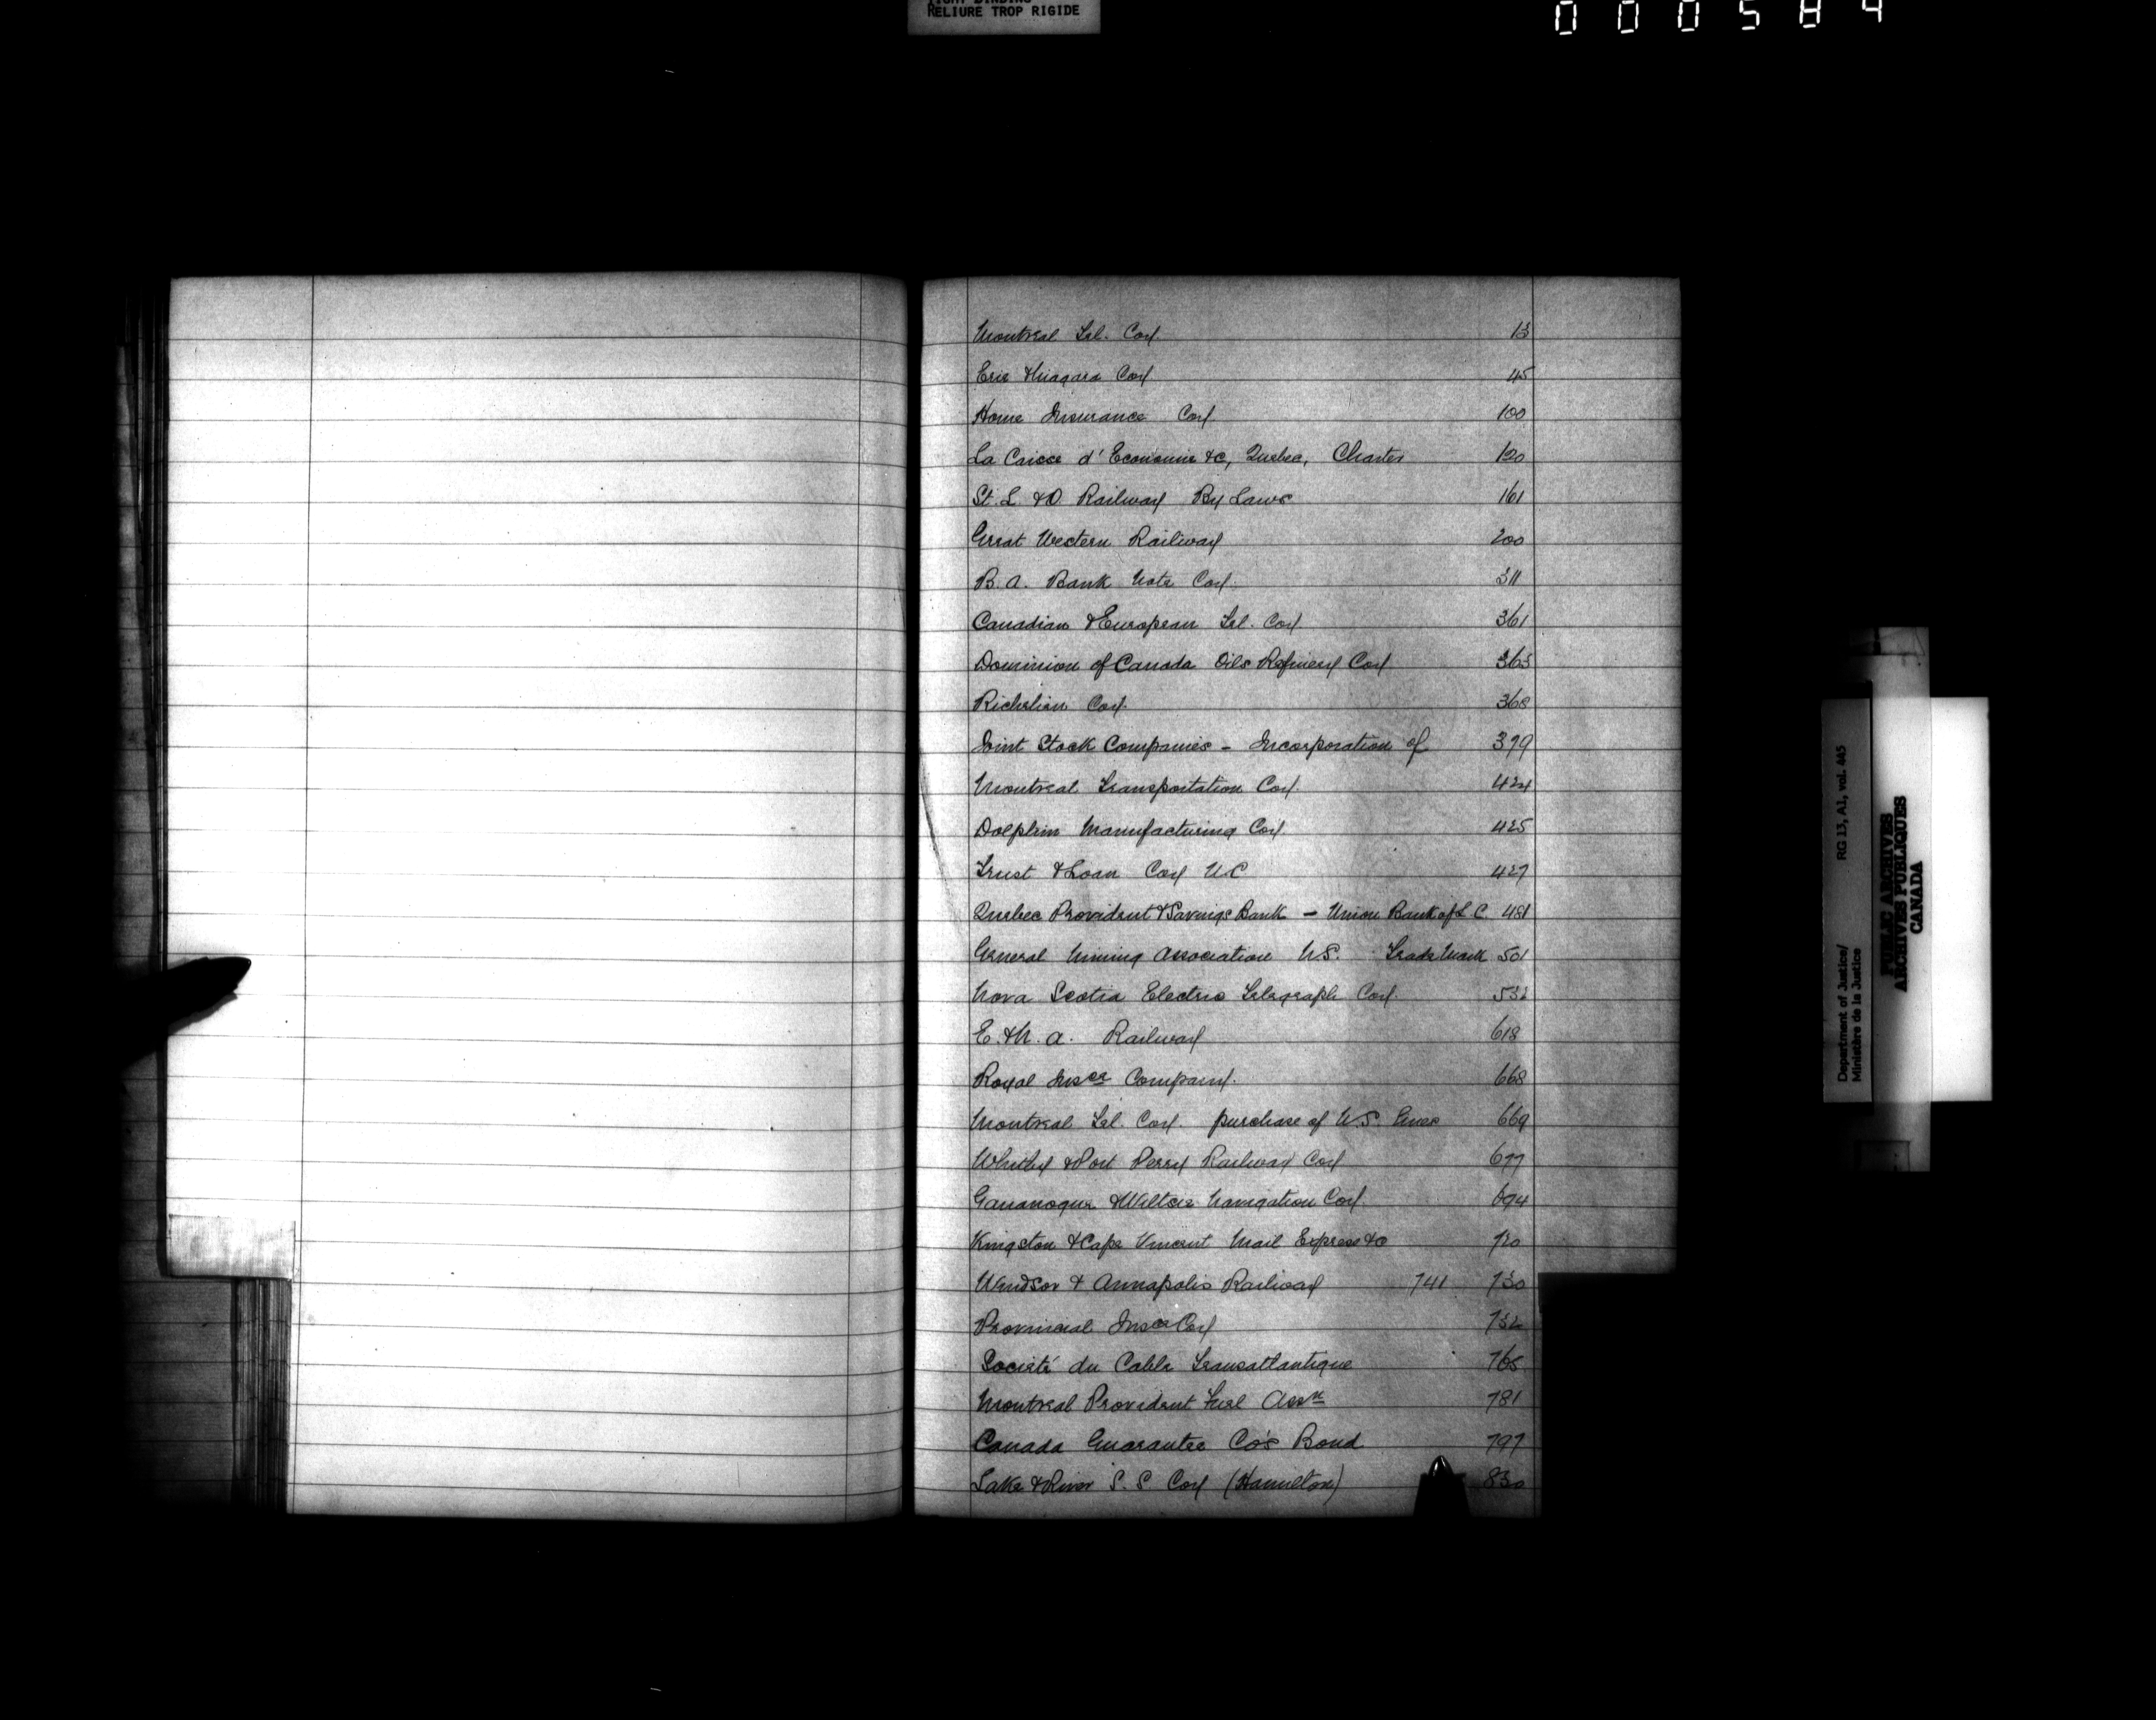 TIGHT BINDING
RELIURE TROP RIGIDE
000584
Montreal Tel. Coy. 13
Erie & Niagara Coy 45
Home Insurance Coy 100
La Caisse d'Economie &c, Quebec, Charter 120
St. L & O Railway By Laws 161
Great Western Railway 200
B. A. Bank Note Coy. 311
Canadian & European Tel. Coy 361
Dominion of Canada Oils Refinery Coy 363
Richelieu Coy. 368
Joint Stock Companies - Incorporation of 379
Montreal Transportation Coy. 424
Dolphin Manufacturing Coy 425
Trust & Loan Coy U.C 427
Quebec Provident & Savings Bank - Union Bank of L. C. 481
General Mining Association N.S. Trade Mark 501
Nova Scotia Electric Telegraph Coy. 532
E. & N. A. Railway 618
Royal Insce Company. 668
Montreal Tel. Coy. purchase of N.S. Lines 669
Whitby & Port Perry Railway Coy 677
Gananoque & Wiltsie Navigation Coy. 694
Kingston & Cape Vincent Mail Express &c 720
Windsor & Annapolis Railway 741 730
Provincial Insce Coy 732
Société du Cable Transatlantique 765
Montreal Provident Fuel Assn 781
Canada Guarantee Co's Bond 797
Lake & River S. S Coy (Hamilton) 830
Department of Justice/ RG 13, A1, vol. 445
Ministère de la Justice
PUBLIC ARCHIVES
ARCHIVES PUBLIQUES
CANADA